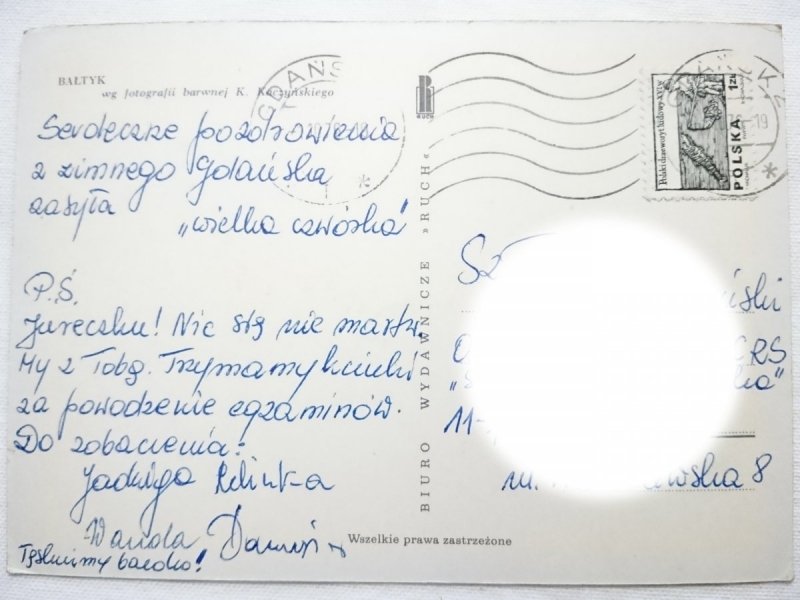 BAŁTYK
wg fotografii barwnej K. Kaczyńskiego
Serdeczne pozdrowienia
z zimnego Gdańska
zasyła
„wielka czwórka"
P.Ś.
Jureczku! Nic się nie martw.
My z Tobą. Trzymamy kciuki
za powodzenie egzaminów.
Do zobaczenia:
Jadwiga
Wanda
Tęsknimy bardzo!
BIURO WYDAWNICZE »RUCH«
RUCH
Wszelkie prawa zastrzeżone
GDAŃS
Polski drzeworyt ludowy XVI w.
POLSKA
1 ZŁ
19
Sz
ński
CRS
11-
ul.
wska 8